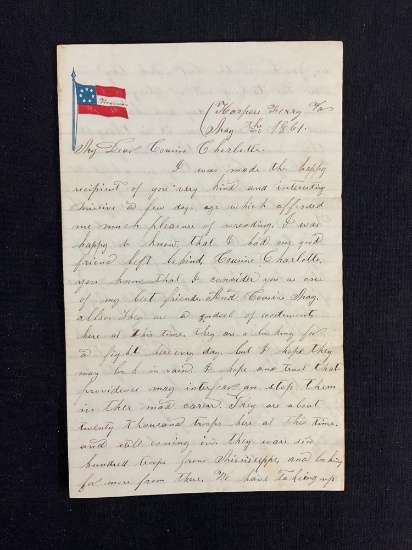 Virginia
Harpers Ferry Va
May 1861.
My Dear Cousin Charlotte.
I was made the happy
recipient of you very kind and interesting
missive a few days ago which afforded
me much pleasure of reading. I was
happy to know, that I had one good
friend left behind Cousin Charlotte,
you know that I consider you as one
of my best friends. And Cousin May,
a godeel of excitement
here at this time. they are a looking for
a fight here every day, but I hope they
may look in vain. I hope and trust that
providence may interfear an stop them
in ther mad career. They are about
twenty thousand troops here at this time.
and still coming in, they ware six
hundred troops from Mississippi, and looking
for more from there. We have taking up